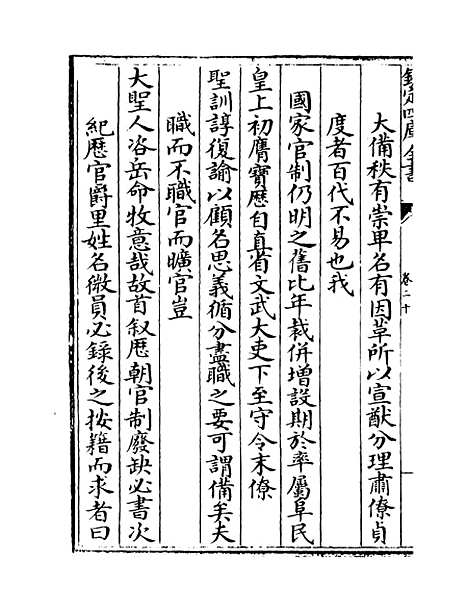 欽定四庫全書
卷二十
大備秩有崇卑名有因革所以宣猷分理肅僚貞
度者百代不易也我
國家官制仍明之舊比年裁併增設期於率屬阜民
皇上初膺寶歴自直省文武大吏下至守令末僚
聖訓諄復諭以顧名思義循分盡職之要可謂備矣夫
職而不職官而曠官豈
大聖人咨岳命牧意哉故首叙歴朝官制廢缺必書次
紀歴官爵里姓名微員必錄後之按籍而求者曰